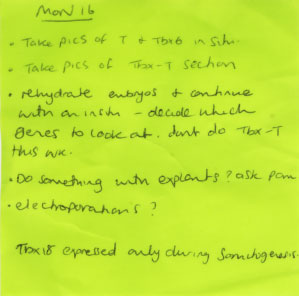 MON 16
• Take pics of T & Tbx6 in situ.
• Take pics of Tbx-T section
• rehydrate embryos & continue
with an insitu - decide which
genes to look at. dont do Tbx-T
this wk.
• Do something with explants? ask pam
• electroporation's?
Tbx18 expressed only during Somitogenesis.